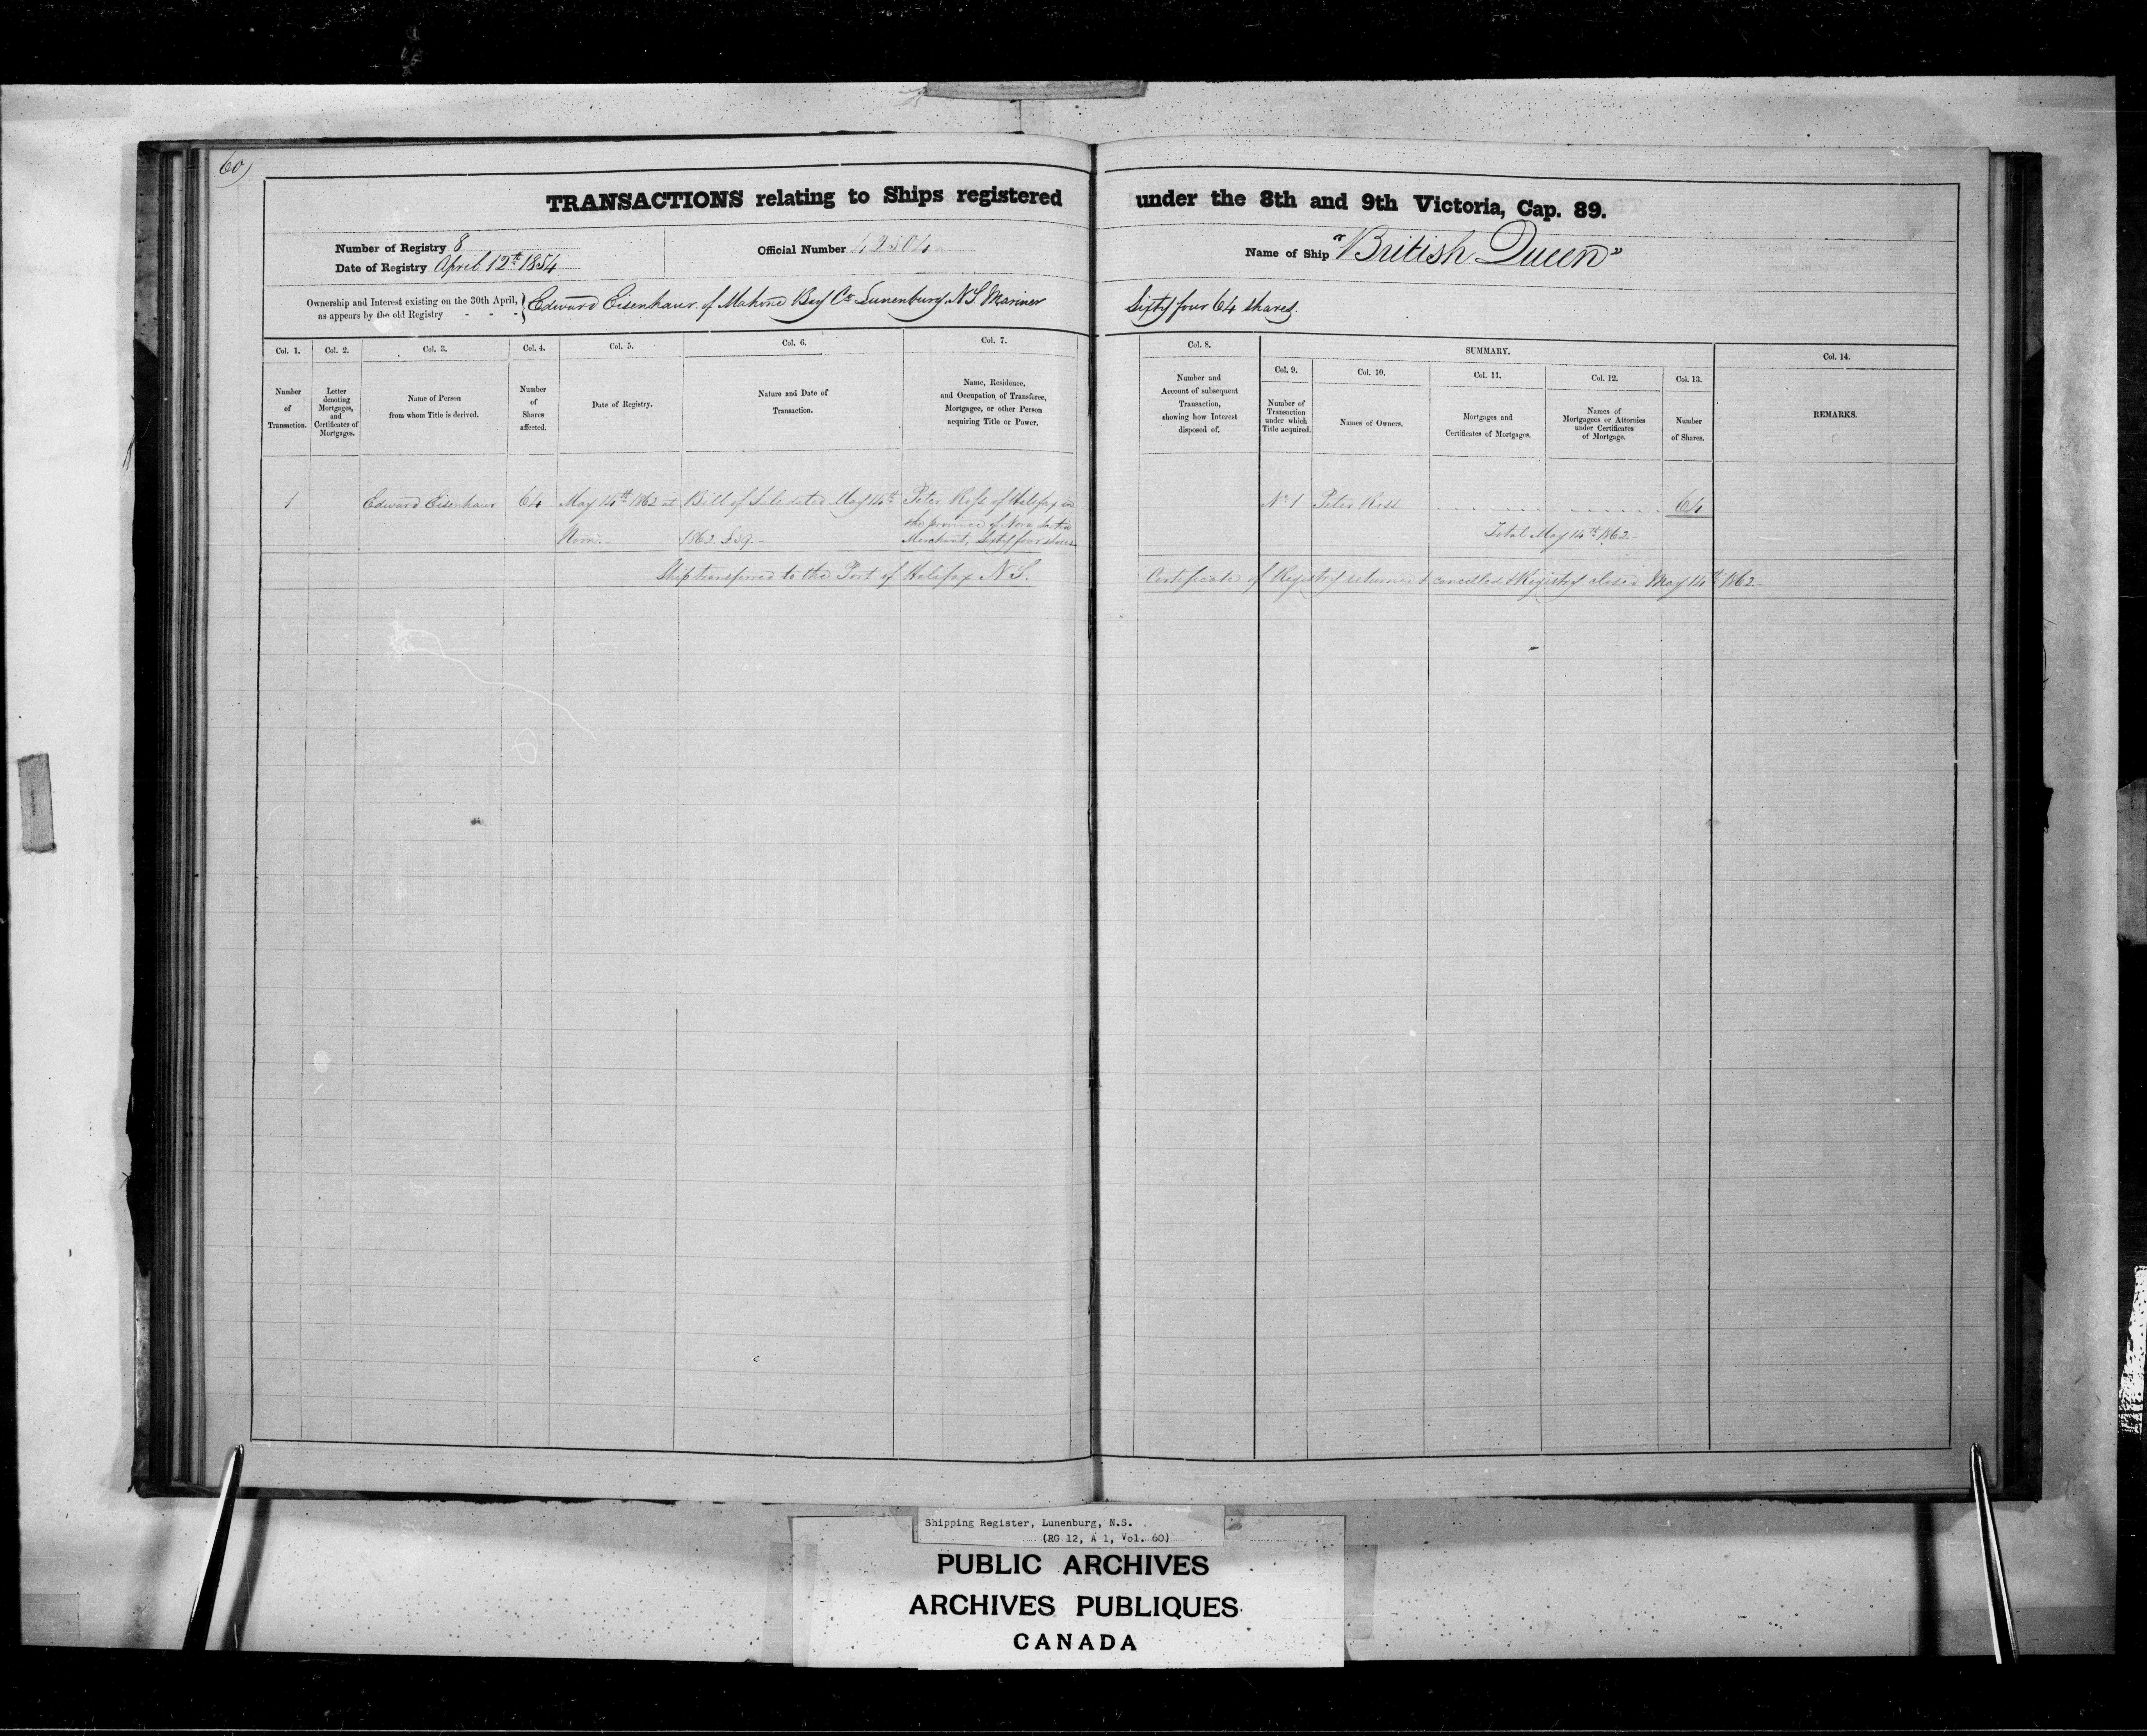 60)
TRANSACTIONS relating to Ships registered under the 8th and 9th Victoria, Cap. 89.
Number of Registry 8
Date of Registry April 12th 1854
Official Number 42504
Name of Ship "British Queen"
Ownership and Interest existing on the 30th April,
as appears by the old Registry - - -
Edward Eisenhaur of Mahone Bay Co Lunenburg N S Mariner Sixty four 64 shares.
Col. 1.
Number
of
Transaction.
Col. 2.
Letter
denoting
Mortgages,
and
Certificates of
Mortgages.
Col. 3.
Name of Person
from whom Title is derived.
Col. 4.
Number
of
Shares
affected.
Col. 5.
Date of Registry.
Col. 6.
Nature and Date of
Transaction.
Col. 7.
Name, Residence,
and Occupation of Transferee,
Mortgagee, or other Person
acquiring Title or Power.
Col. 8.
Number and
Account of subsequent
Transaction,
showing how Interest
disposed of.
SUMMARY.
Col. 9.
Number of
Transaction
under which
Title acquired.
Col. 10.
Names of Owners.
Col. 11.
Mortgages and
Certificates of Mortgages.
Col. 12.
Names of
Mortgagees or Attornies
under Certificates
of Mortgage.
Col. 13.
Number
of Shares.
Col. 14.
REMARKS.
1
Edward Eisenhaur
64
May 14th 1862 at
Noon.-
Bill of Sale dated May 14th
1862 £59.-
Peter Ross of Halifax in
the province of Nova Scotia
Merchant, Sixty four shares
No 1
Peter Ross
64
Total May 14th 1862-
Ship transferred to the Port of Halifax N S. Certificate of Registry returned & cancelled & Registry closed May 14th 1862-
Shipping Register, Lunenburg, N.S.
(RG 12, A 1, Vol. 60)
PUBLIC ARCHIVES
ARCHIVES PUBLIQUES
CANADA